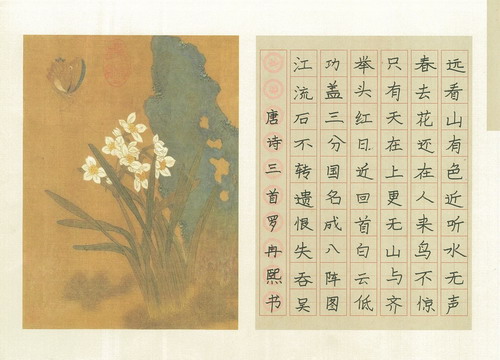 远看山有色近听水无声
春去花还在人来鸟不惊
只有天在上更无山与齐
举头红日近回首白云低
功盖三分国名成八阵图
江流石不转遗恨失吞吴
唐诗三首罗冉熙书